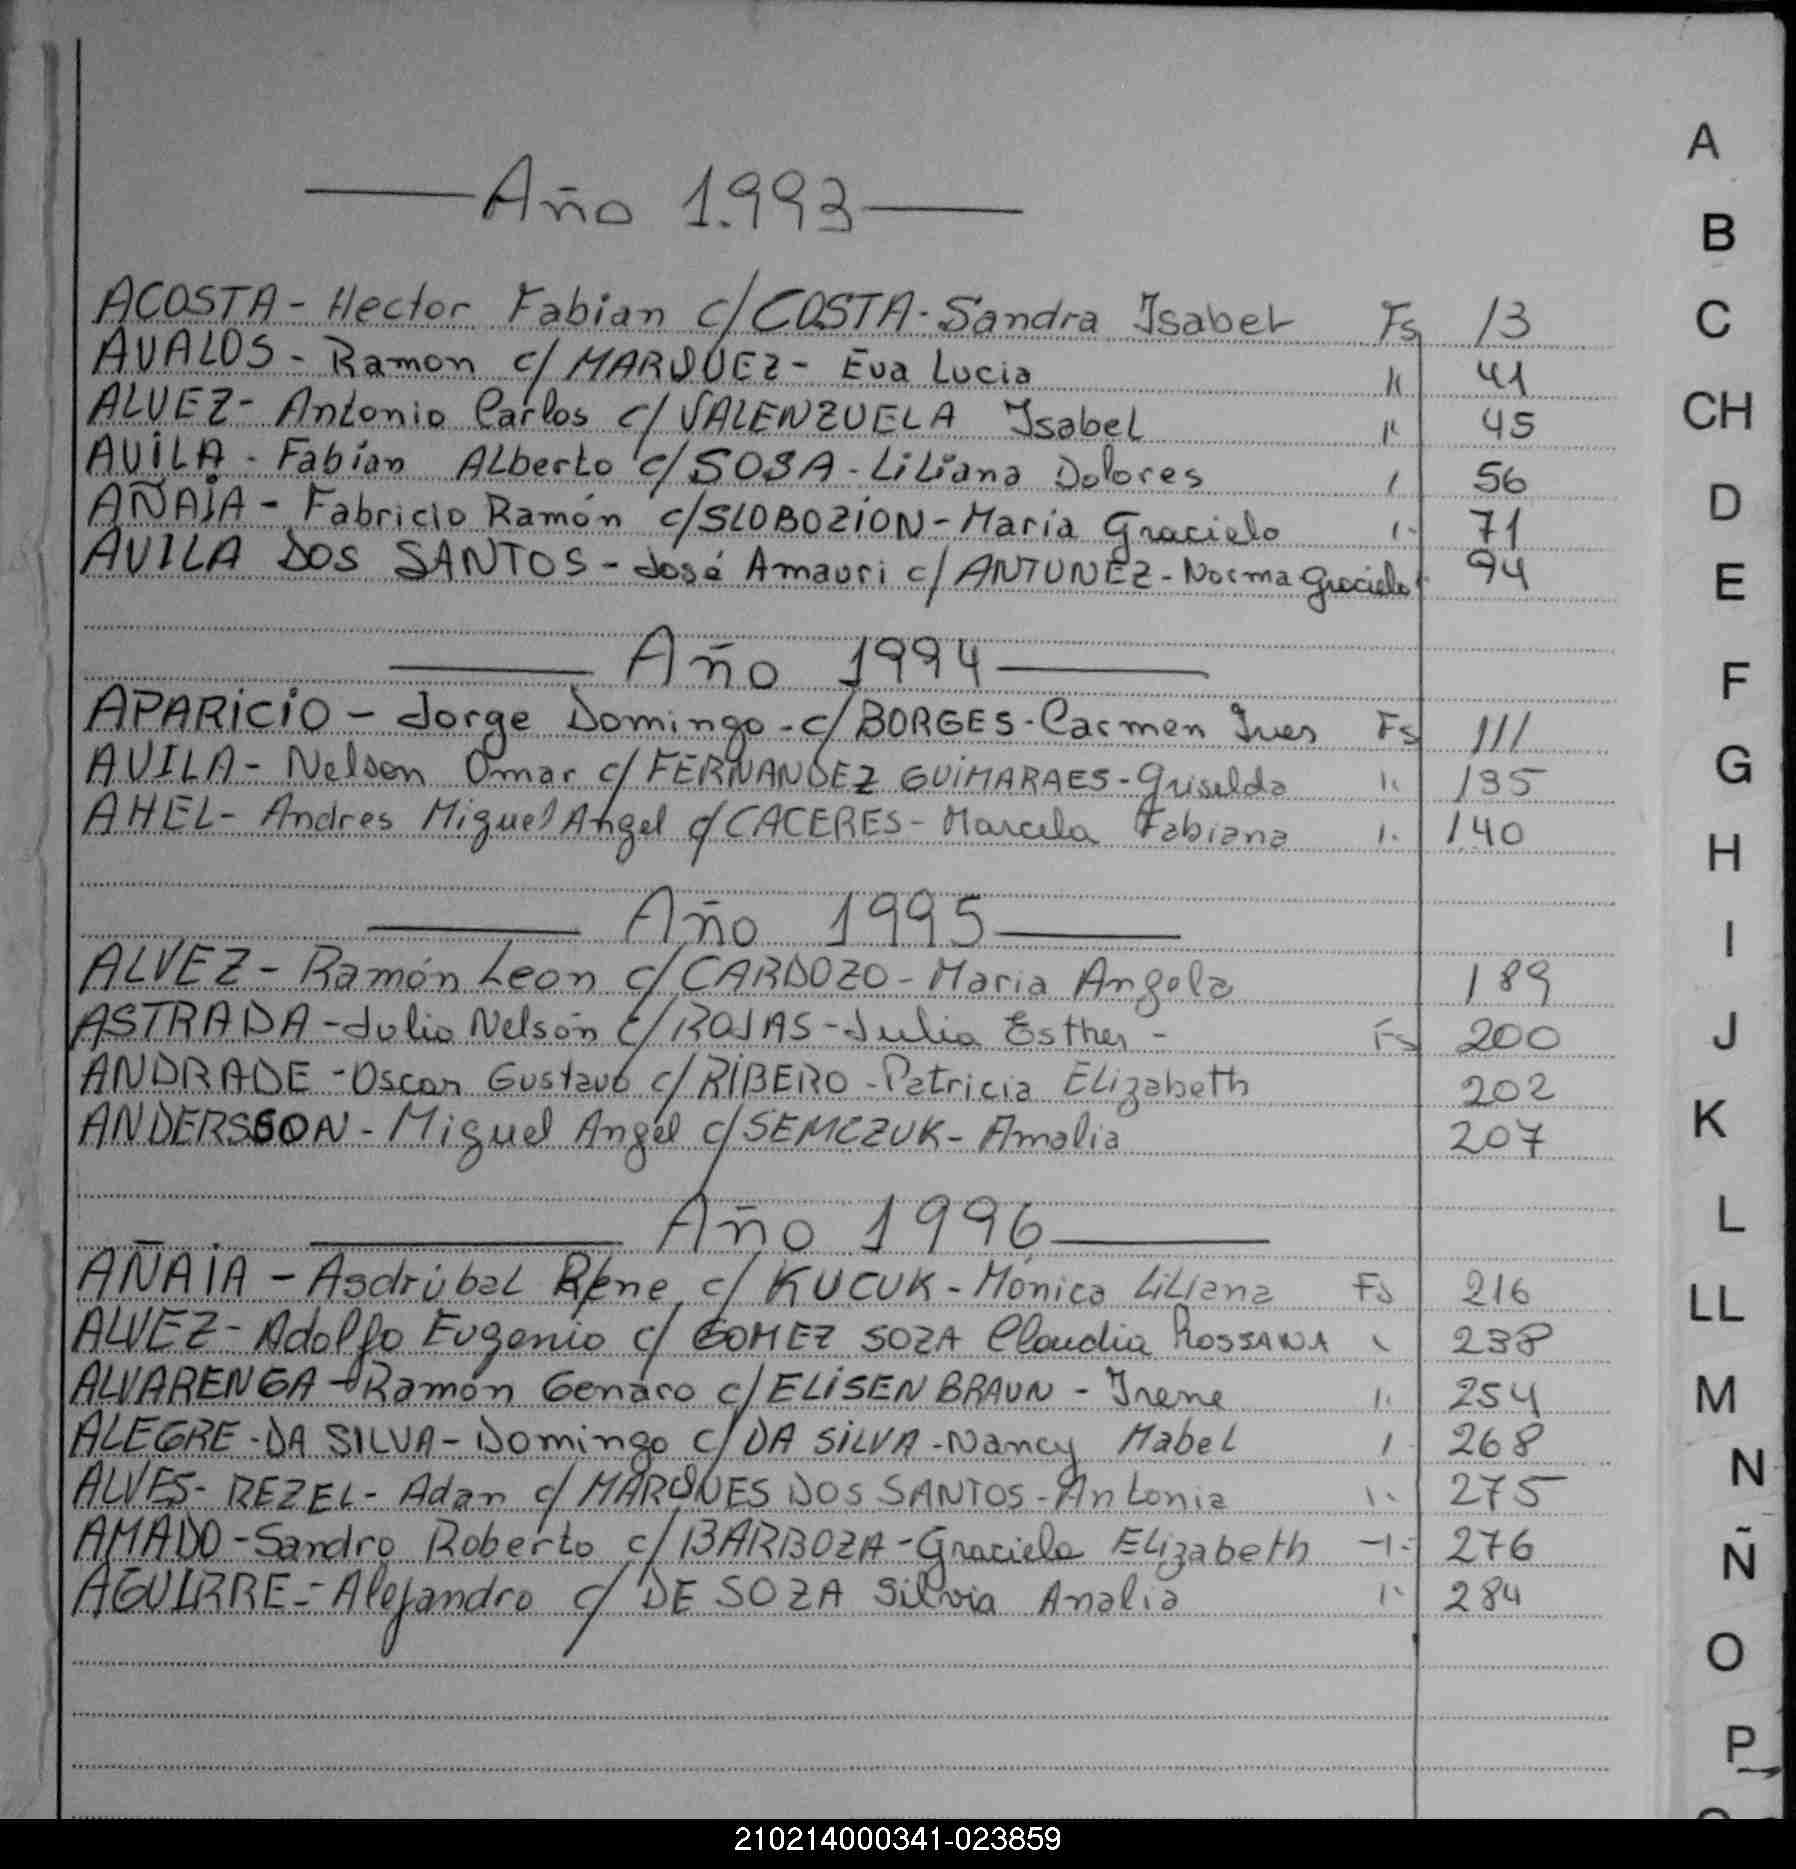 Año 1.993
ACOSTA - Hector Fabian c/ COSTA - Sandra Isabel Fs 13
AVALOS - Ramon c/ MARQUEZ - Eva Lucia " 41
ALVEZ - Antonio Carlos c/ VALENZUELA Isabel " 45
AVILA - Fabian Alberto c/ SOSA - Liliana Dolores " 56
AÑAIA - Fabricio Ramón c/ SLOBOZION - Maria Graciela " 71
AVILA DOS SANTOS - José Amauri c/ ANTUNEZ - Norma Graciela " 94
Año 1994
APARICIO - Jorge Domingo - c/ BORGES - Carmen Ines Fs 111
AVILA - Nelson Omar c/ FERNANDEZ GUIMARAES - Griselda " 135
AHEL - Andres Miguel Angel c/ CACERES - Marcela Fabiana " 140
Año 1995
ALVEZ - Ramón Leon c/ CARDOZO - Maria Angela 189
ASTRADA - Julio Nelsón c/ ROJAS - Julia Esther - Fs 200
ANDRADE - Oscar Gustavo c/ RIBERO - Patricia Elizabeth 202
ANDERSSON - Miguel Angel c/ SEMCZUK - Amalia 207
Año 1996
AÑAIA - Asdrúbal Rene c/ KUCUK - Mónica Liliana Fs 216
ALVEZ - Adolfo Eugenio c/ GOMEZ SOZA Claudia ROSSANA " 238
ALVARENGA - Ramón Genaro c/ ELISEN BRAUN - Irene " 254
ALEGRE - DA SILVA - Domingo c/ DA SILVA - Nancy Mabel " 268
ALVES - REZEL - Adan c/ MARQUES DOS SANTOS - Antonia " 275
AMADO - Sandro Roberto c/ BARBOZA - Graciela Elizabeth " 276
AGUIRRE - Alejandro c/ DE SOZA Silvia Analia " 284
A
B
C
CH
D
E
F
G
H
I
J
K
L
LL
M
N
Ñ
O
P
210214000341-023859